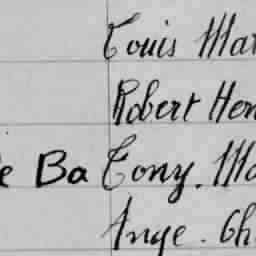 Louis Mar
Robert Hen
e Ba Tony. Ma
Ange. Ch